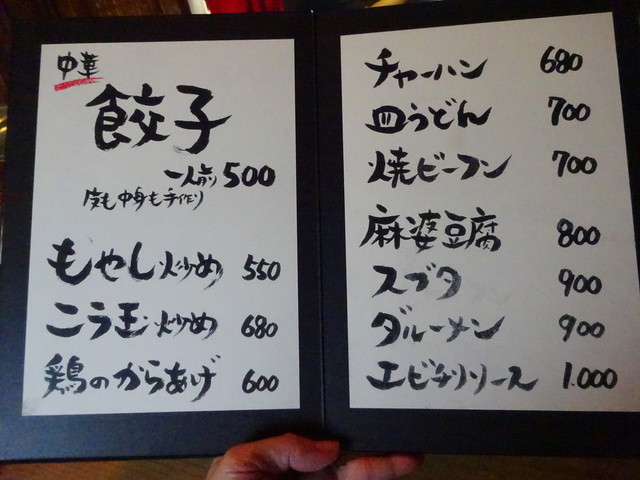 中華
餃子
一人前 500
皮も中身も手作り
もやし炒め 550
こう玉炒め 680
鶏のからあげ 600
チャーハン 680
皿うどん 700
焼ビーフン 700
麻婆豆腐 800
スブタ 900
ダルーメン 900
エビチリソース 1.000